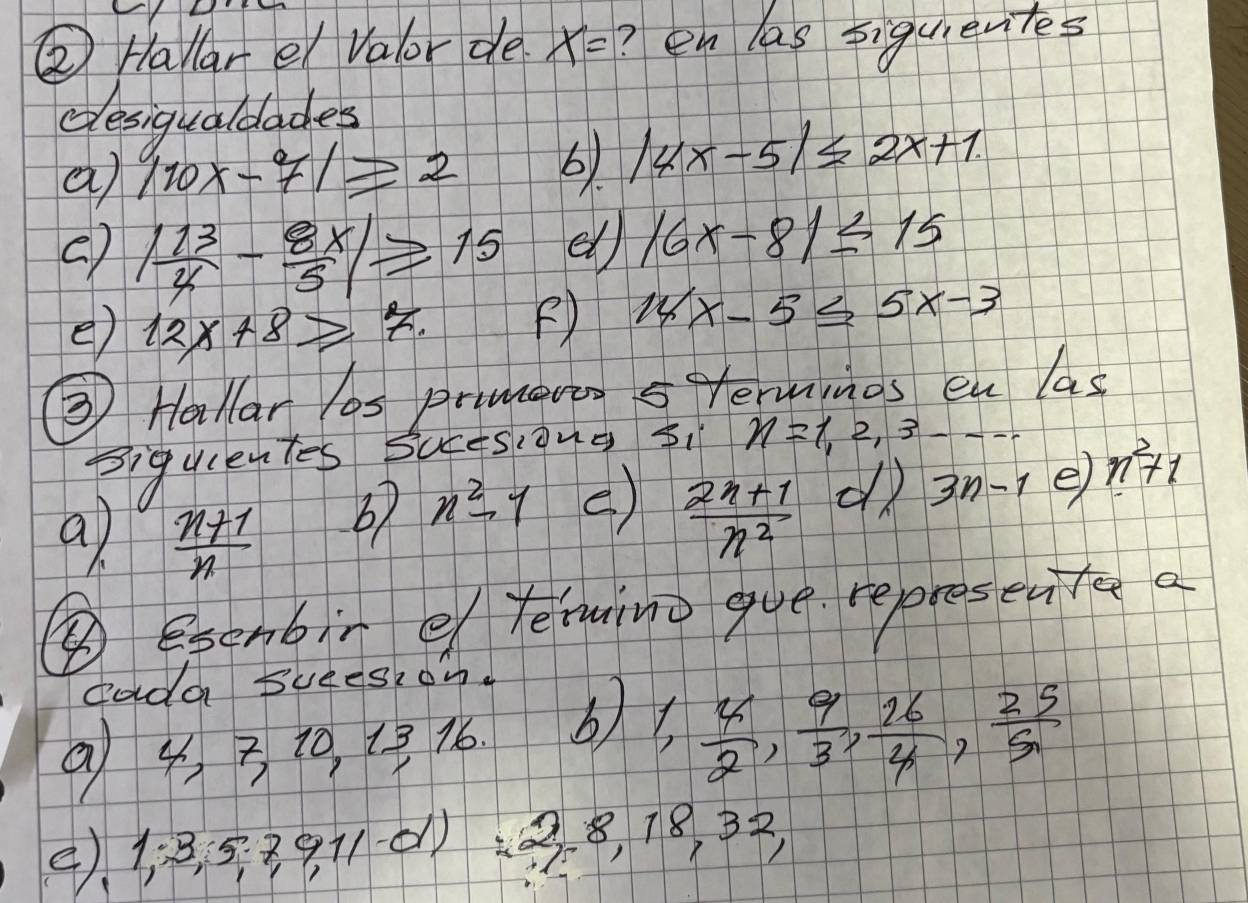 ② Hallar el Valor de X=? en las siguientes
desigualdades
a) |10x-7| ≥ 2 b). |4x-5| ≤ 2x+1.
c) |13/4 - 8/5 x| ≥ 15 d) |6x-8| ≤ 15
e) 12x+8 ≥ 7. f) 14x-5 ≤ 5x-3
③ Hallar los primeros 5 Terminos en las
siguientes sucesiong si n=1, 2, 3-----
a). n+1/n b) n²-1 c) 2n+1/n² d) 3n-1 e) n²+1
④ Escribir el término que representa a
cada sucesión.
a) 4, 7, 10, 13, 16. b) 1, 4/2, 9/3, 16/4, 25/5
c). 1, 3, 5, 7, 9, 11 d) 2, 8, 18, 32,